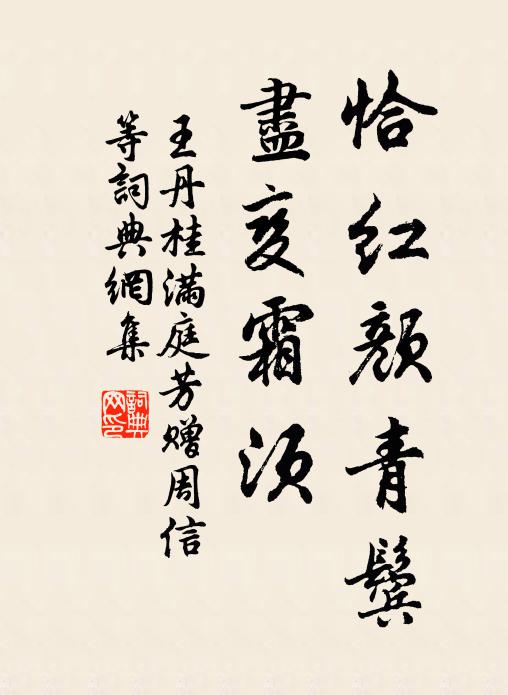 恰红颜青鬓
盡变霜须
王丹桂满庭芳赠周信
等詞典網集
詞典
网印